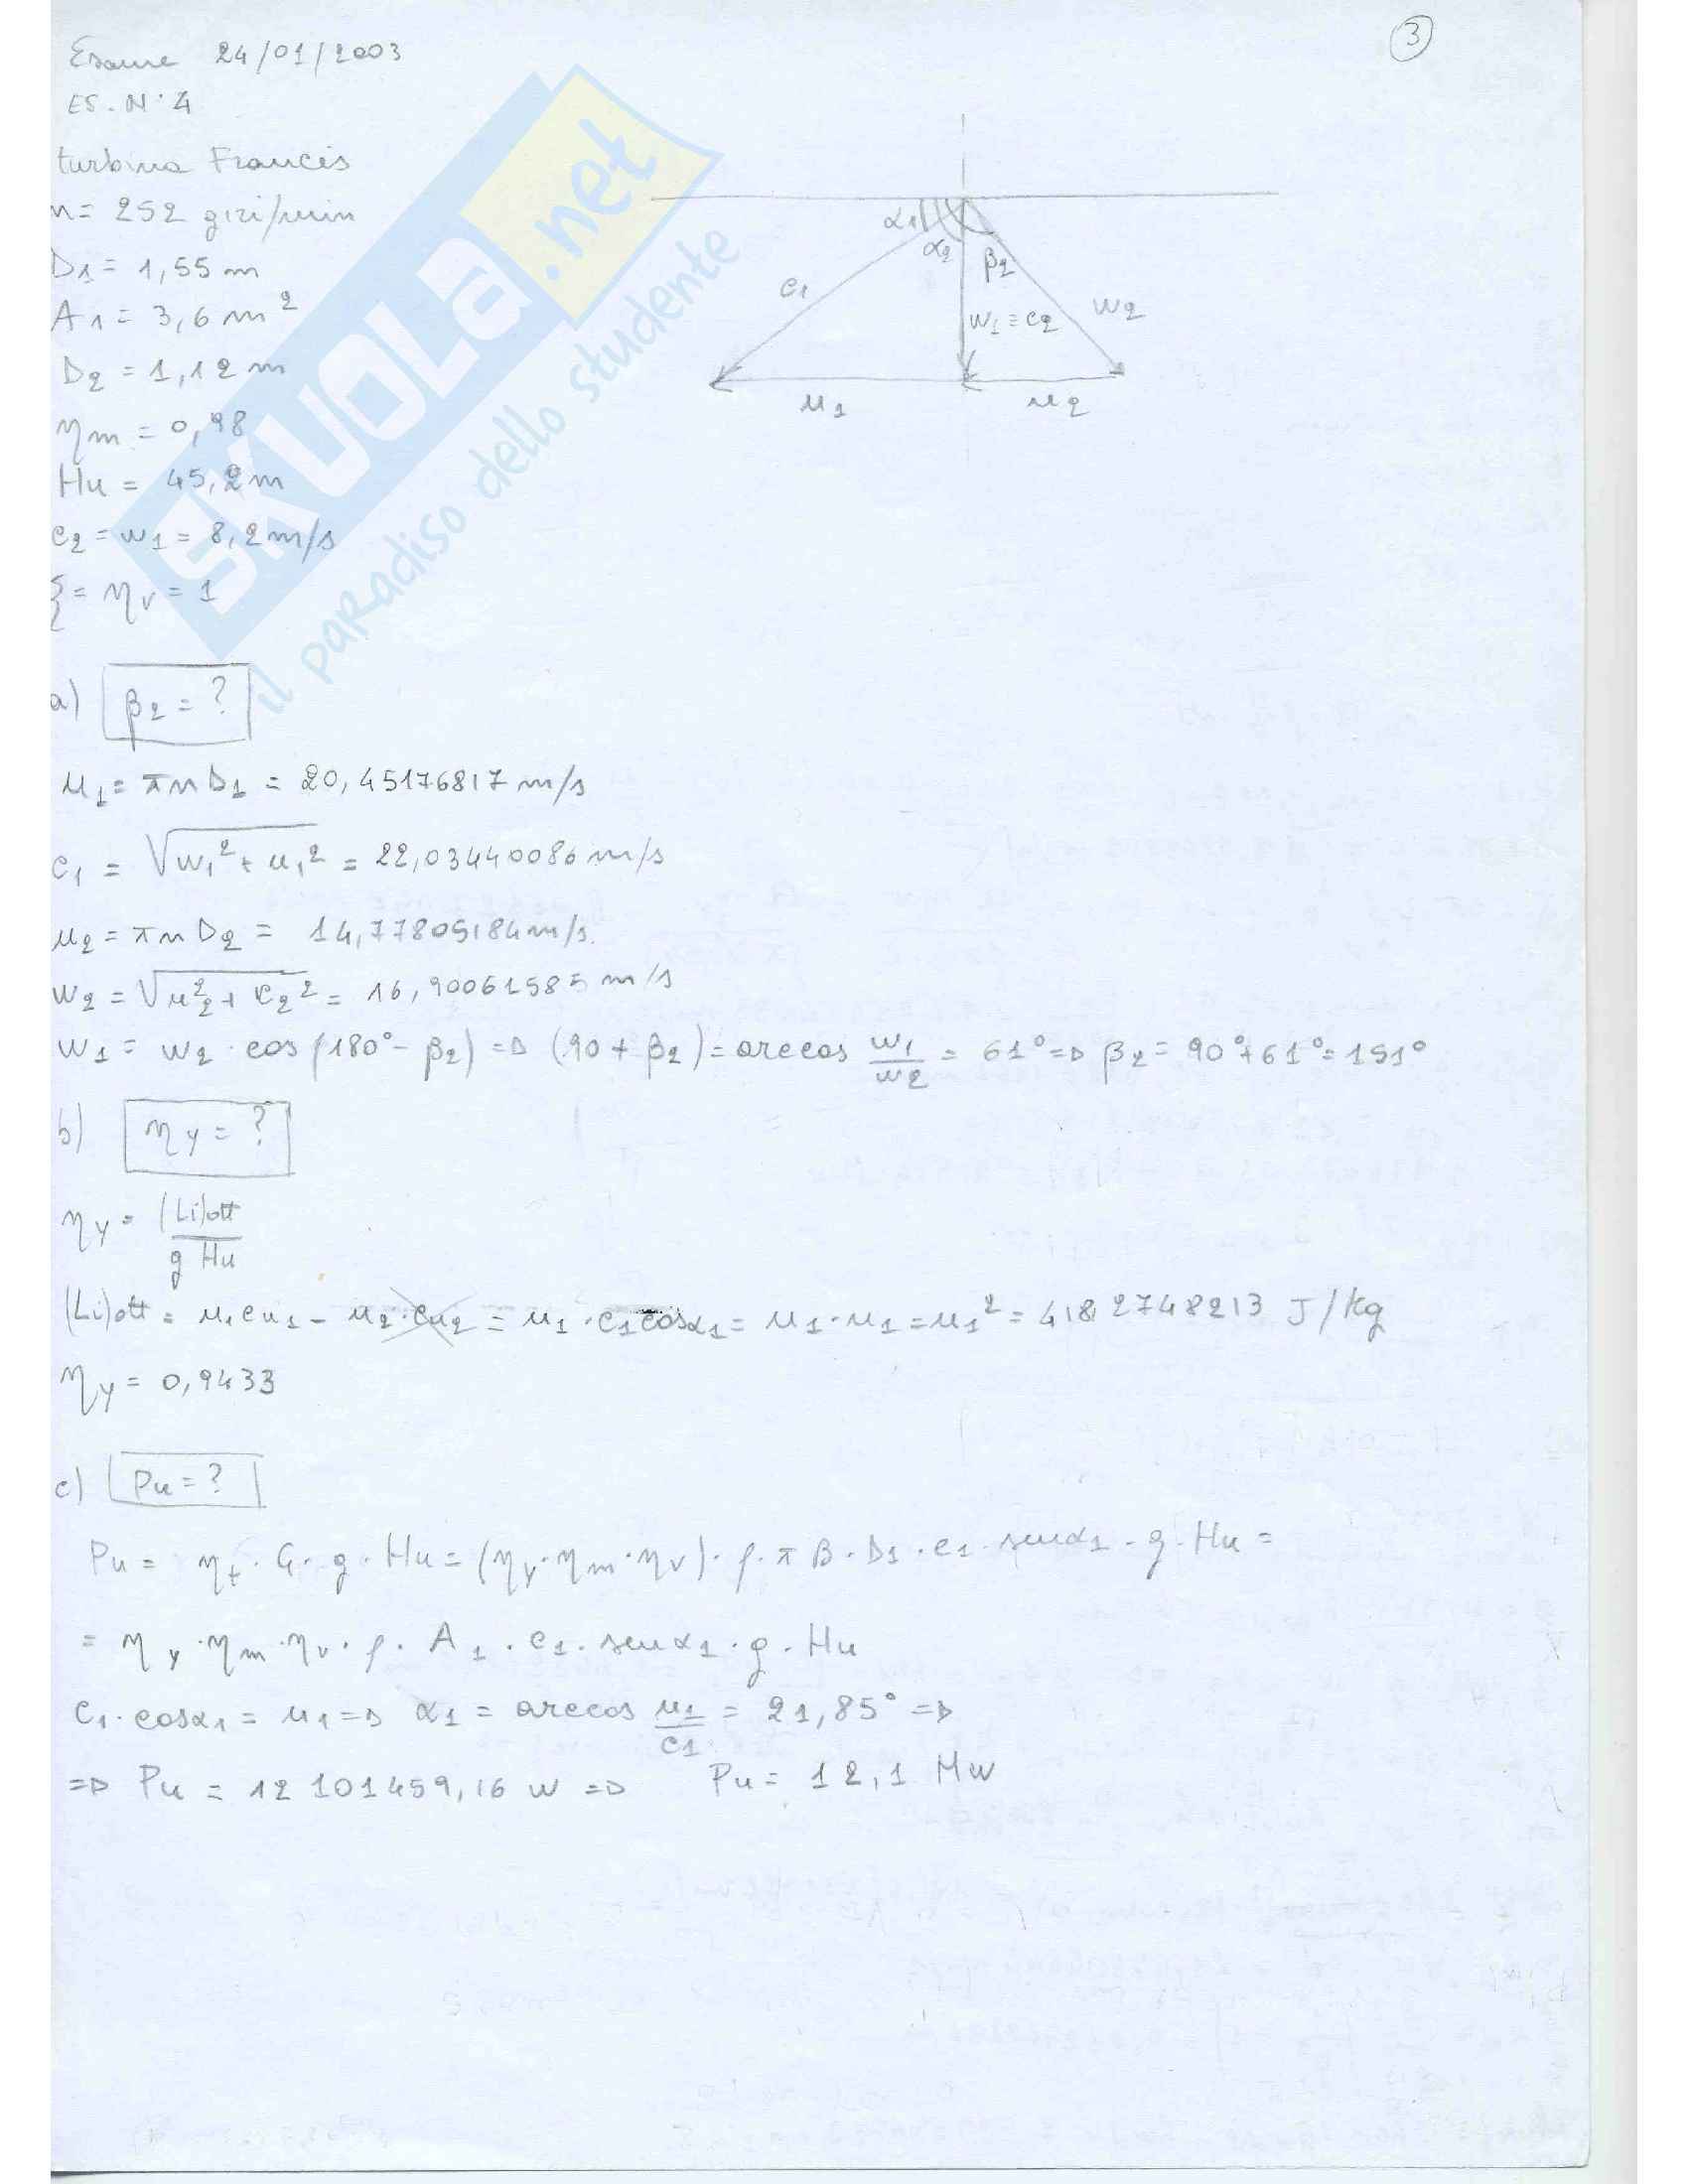 3
Esame 24/01/2003
ES. N° 4
turbina Francis
n = 252 giri/min
D1 = 1,55 m
A1 = 3,6 m²
D2 = 1,12 m
ηm = 0,98
Hu = 45,2 m
c2 = w1 = 8,2 m/s
ξ = ηv = 1
α1
α2
β2
c1
w1 ≡ c2
w2
u1
u2
SKUOLA.net
il paradiso dello studente
a) β2 = ?
u1 = π n D1 = 20,45176817 m/s
c1 = √(w1² + u1²) = 22,03440086 m/s
u2 = π n D2 = 14,77805184 m/s
w2 = √(u2² + c2²) = 16,90061585 m/s
w1 = w2 · cos (180° - β2) => (90 + β2) = arccos w1/w2 = 61° => β2 = 90° + 61° = 151°
b) ηy = ?
ηy = (Li)ott / g Hu
(Li)ott = u1 cu1 - u2 · cu2 = u1 · c1 cosα1 = u1 · u1 = u1² = 418,2748213 J/kg
ηy = 0,9433
c) Pu = ?
Pu = ηt · G · g · Hu = (ηy · ηm · ηv) · ρ · π B · D1 · c1 · senα1 · g · Hu =
= ηy · ηm · ηv · ρ · A1 · c1 · senα1 · g · Hu
c1 · cosα1 = u1 => α1 = arccos u1/c1 = 21,85° =>
=> Pu = 12 101459,16 W => Pu = 12,1 MW